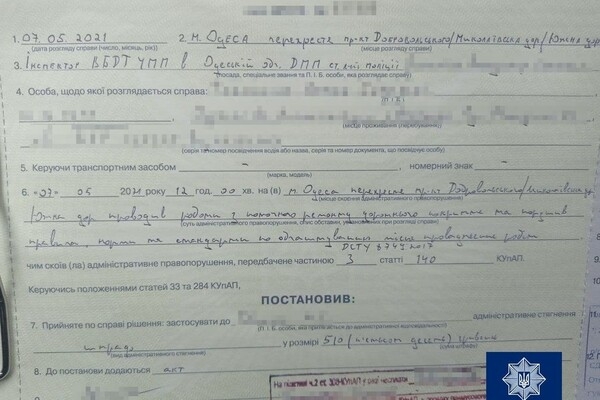 1. 07.05.2021 2. м. Одеса перехрестя пр-кт Добровольського/Миколаївська дор/Южна дор
(дата розгляду справи (число, місяць, рік)) (місце розгляду справи)
3. Інспектор ВБДР УПП в Одеській обл. ДПП ст. лей поліції
(посада, спеціальне звання та П. І. Б. особи, яка розглядає справу)
4. Особа, щодо якої розглядається справа:
(П.І.Б)
(місце проживання (перебування)
(серія та номер посвідчення водія або, назва, серія та номер документа, що посвідчує особу)
5. Керуючи транспортним засобом – номерний знак –
(марка, модель)
6. «07» 05 2021 року 12 год. 00 хв. на (в) м. Одеса перехрестя пр-кт Добровольського/Миколаївська
(місце скоєння адміністративного правопорушення)
Южна дор проводив роботи з поточного ремонту дорожнього покриття та порушив
(суть адміністративного правопорушення, опис обставин, установлених при розгляді справи)
правила, норми та стандарти по облаштуванню місця проведення робіт
ДСТУ 8749:2017
чим скоїв (ла) адміністративне правопорушення, передбачене частиною 3 статті 140 КУпАП.
Керуючись положеннями статей 33 та 284 КУпАП,
ПОСТАНОВИВ:
7. Прийняте по справі рішення: застосувати до адміністративне стягнення
(П. І. Б. особи, яка притягається до адміністративної відповідальності)
штраф у розмірі 510 (п'ятсот десять) гривень
(вид адміністративного стягнення)
8. До постанови додаються акт